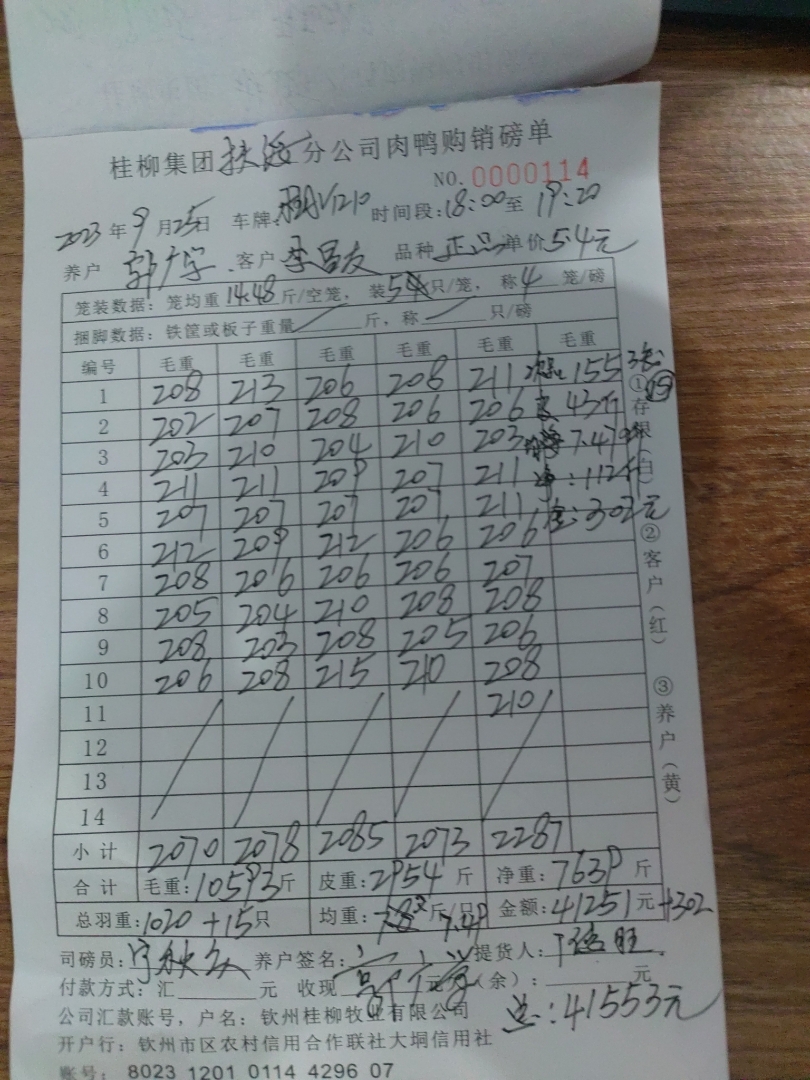 桂柳集团扶海分公司肉鸭购销磅单
NO. 0000114
2023年9月25日 车牌: 时间段:18:00至19:20
养户 客户 李昌友 品种 正品 单价5.4元
笼装数据: 笼均重14.48斤/空笼, 装 只/笼, 称4笼/磅
捆脚数据: 铁筐或板子重量 斤, 称 只/磅
编号 毛重 毛重 毛重 毛重 毛重 毛重
1 208 213 206 208 211 155
2 202 207 208 206 206 43斤
3 203 210 204 210 203 7.47
4 211 211 209 207 211 净:112斤
5 207 207 207 207 211 金:302元
6 212 209 212 206 206
7 208 206 206 206 207
8 205 204 210 208 208
9 208 203 208 205 206
10 206 208 215 210 208
11 210
12
13
14
小计 2070 2078 2085 2073 2287
合计 毛重:10593斤 皮重:2954斤 净重:7639斤
总羽重:1020+15只 均重: 斤/只 7.49 金额:41251元+302
司磅员: 养户签名: 提货人:
付款方式: 汇 元 收现 元 (余): 元
总:41553元
公司汇款账号, 户名: 钦州桂柳牧业有限公司
开户行: 钦州市区农村信用合作联社大垌信用社
账号: 8023 1201 0114 4296 07
①存根(白)
②客户(红)
③养户(黄)